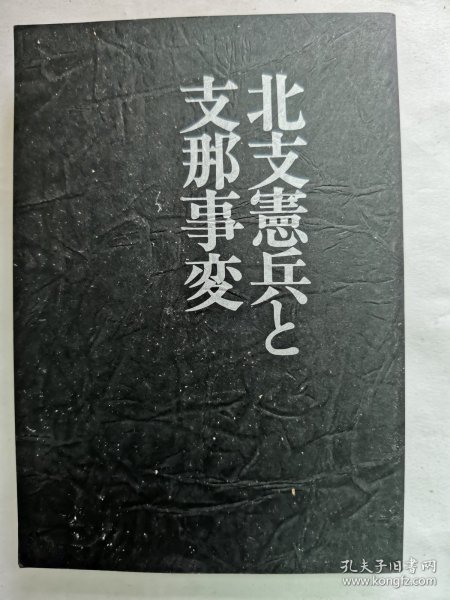 北支憲兵と
支那事変
孔夫子旧书网
www.kongfz.com